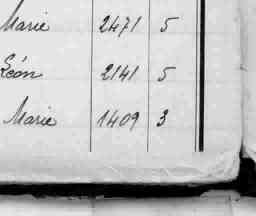 Marie 2471 5
Léon 2141 5
Marie 1409 3